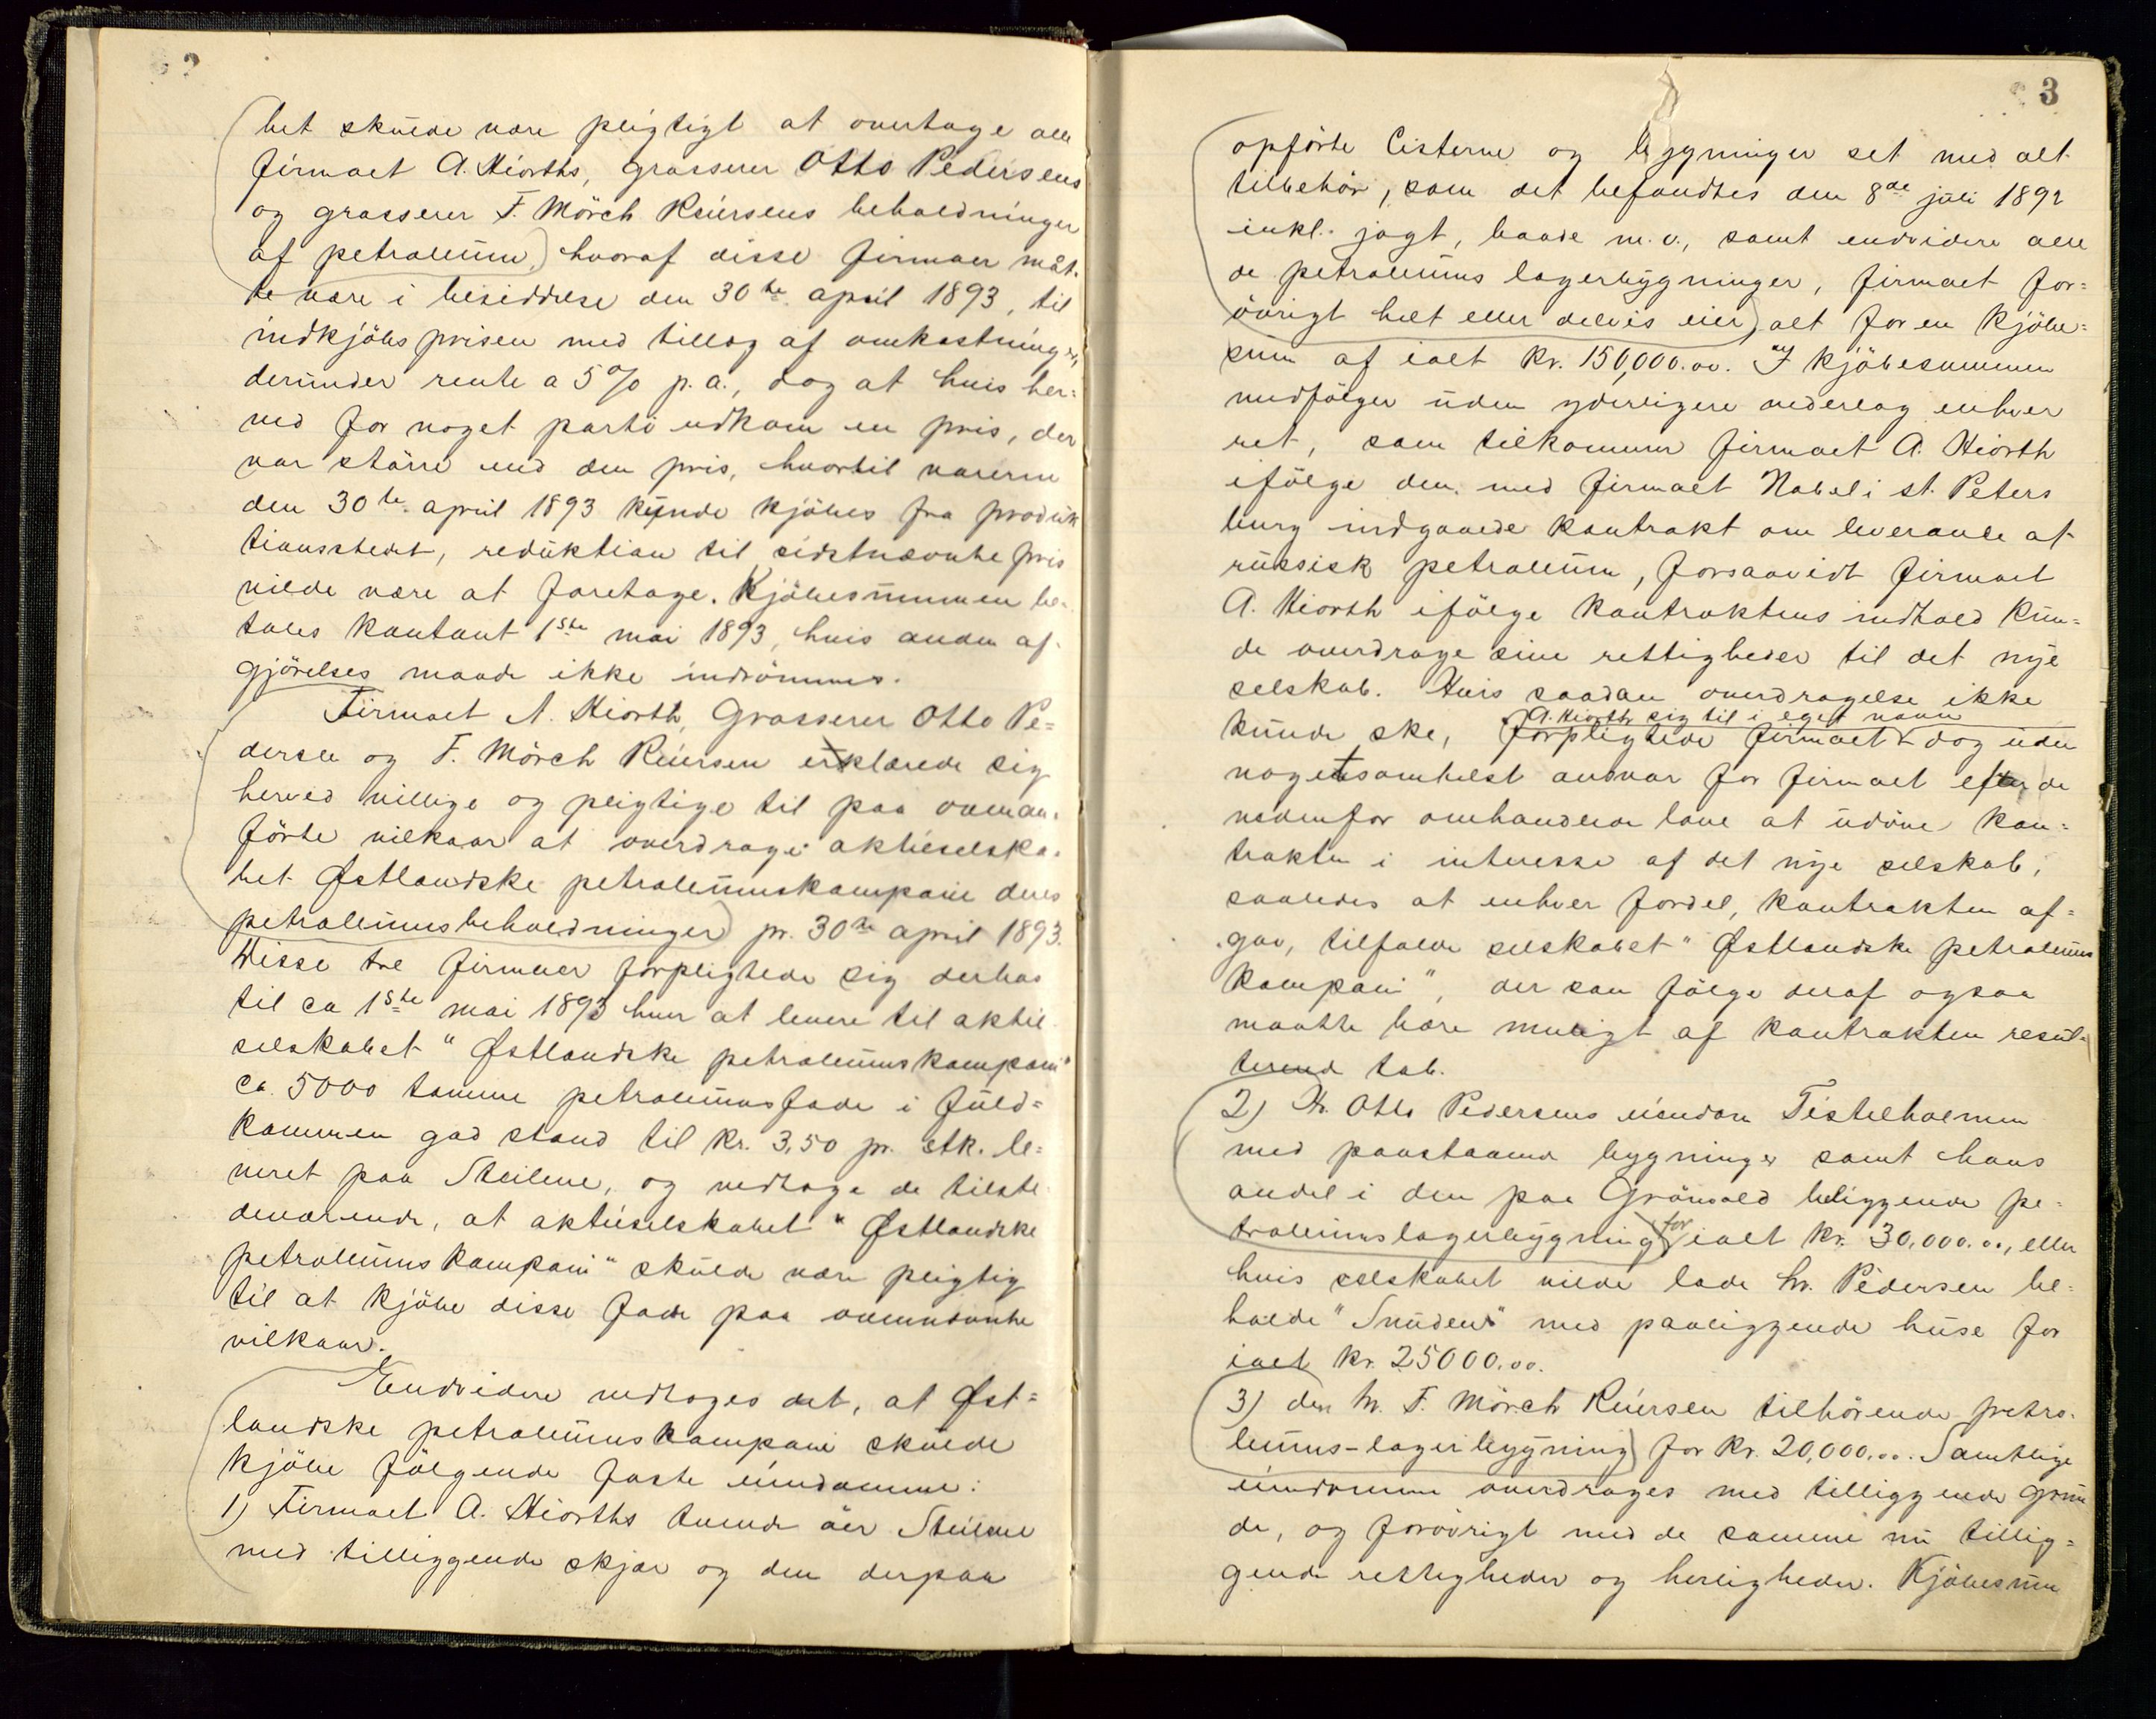 2
bet skulde være pligtigt at overtage alle
firmaet A. Hiorths, grosserer Otto Pedersens
og grosserer F. Mörch Reiersens beholdninger
af petroleum, hvoraf disse firmaer måt-
te være i besiddelse den 30te april 1893, til
indkjöbsprisen med tillæg af omkostninger,
derunder rente a 5% p.a., dog at hvis her=
ved for noget parti udkom en pris, der
var större end den pris, hvortil varerne
den 30te april 1893 kunde kjöbes fra produk
tionsstedet, reduktion til sidstnævnte pris
vilde være at foretage. Kjöbesummen be-
tales kontant 1ste mai 1893, hvis anden af-
gjörelses maade ikke indrömmes.
Firmaet A. Hiorth, Grosserer Otto Pe=
dersen og F. Mörch Reiersen erklærede sig
herved villige og pligtige til paa ovenan-
förte vilkaar at overdrage aktieselska-
bet Østlandske petroleumskompani deres
petroleumsbeholdninger pr. 30te april 1893.
Disse tre firmaer forpligtede sig derhos
til ca 1ste mai 1893 hver at levere til aktie
selskabet "Østlandske petroleumskompani"
ca. 5000 tomme petroleumsfade i fuld=
kommen god stand til kr. 3,50 pr. stk. le=
veret paa Steilene, og vedtoge de tilste-
deværende, at aktieselskabet "Østlandske
petroleumskompani" skulde være pligtig
til at kjöbe disse fade paa ovennævnte
vilkaar.
Endvidere vedtoges det, at Øst=
landske petroleumskompani skulde
kjöbe fölgende faste eiendomme:
1) Firmaet A. Hiorths tvende öer Steilene
med tilliggende skjær og den derpaa
3
opförte Cisterne og bygninger set med alt
tilbehör, som det befandtes den 8de juli 1892
inkl. jagt, baade m.v., samt endvidere alle
de petroleums lagerbygninger, firmaet for=
övrigt helt eller delvis eier, alt for en kjöbe=
sum af ialt kr. 150,000.00. I kjöbesummen
medfölger uden yderligere vederlag enhver
ret, som tilkommer firmaet A. Hiorth
ifölge den med firmaet Nobel i st. Peters
burg indgaaede kontrakt om leverance af
russisk petroleum, forsaavidt firmaet
A. Hiorth ifölge kontraktens indhold kun=
de overdrage sine rettigheder til det nye
selskab. Hvis saadan overdragelse ikke
A. Hiorth sig til i eget navn
kunde ske, forpligtede firmaet dog uden
nogetsomhelst ansvar for firmaet efter de
nedenfor omhandlede love at udöve kon=
trakten i interesse af det nye selskab,
saaledes at enhver fordel, kontrakten af=
gav, tilfaldt selskabet "Østlandske petroleums
kompani", der som fölge deraf ogsaa
maatte bære muligt af kontrakten resul=
terende tab.
2) Hr. Otto Pedersens eiendom Tistelholmen
med paastaaende bygninger samt hans
andel i den paa Grönvold beliggende pe=
troleumslagerbygning for ialt kr. 30,000.00, eller
hvis selskabet vilde lade hr. Pedersen be=
holde "Snuden" med paaliggende huse for
ialt kr. 25000.00.
3) den hr. F. Mörch Reiersen tilhörende petro-
leums-lagerbygning for kr. 20,000.00. Samtlige
eiendomme overdrages med tilliggende grun
de, og forövrigt med de samme nu tillig=
gende rettigheder og herligheder. Kjöbesum